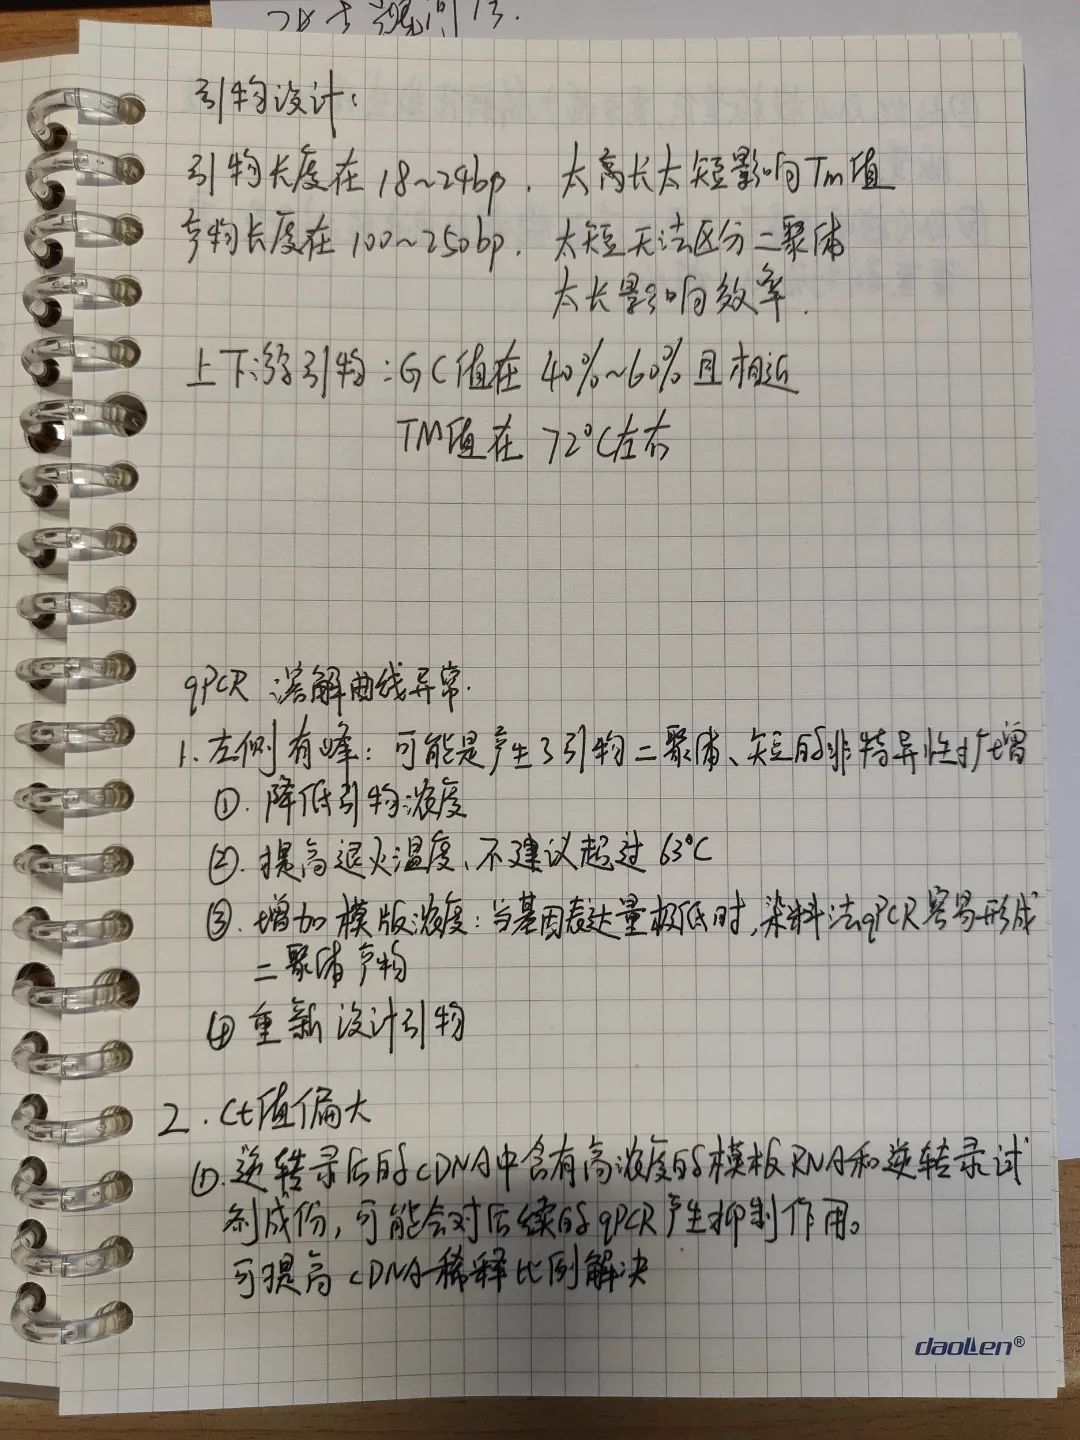 引物设计:
引物长度在18~24bp. 太高长太短影响Tm值
产物长度在100~250bp. 太短无法区分二聚体
太长影响效率.
上下游引物:GC值在40%~60%且相近
TM值在72℃左右
qPCR 溶解曲线异常.
1.左侧有峰:可能是产生了引物二聚体、短的非特异性扩增
①.降低引物浓度
②.提高退火温度、不建议超过63℃
③.增加模版浓度:当基因表达量极低时,染料法qPCR容易形成
二聚体产物
④重新设计引物
2.Ct值偏大
①.逆转录后的cDNA中含有高浓度的模板RNA和逆转录试
剂成份,可能会对后续的qPCR产生抑制作用。
可提高cDNA稀释比例解决
daoLen®